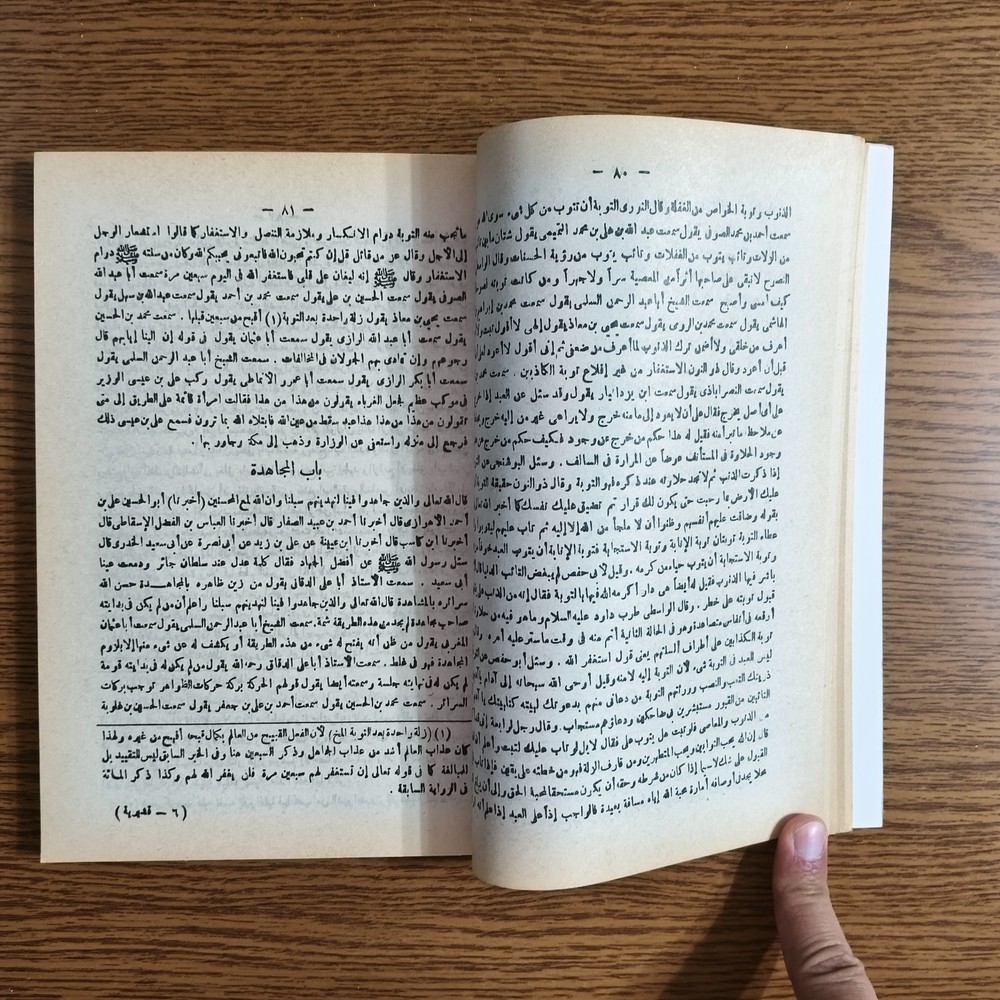 — ٨٠ —
الذنوب وتوبة الخواص من الغفلة وقال النورى التوبة أن تتوب من كل شىء سوى الله
سمعت أحمد بن محمد الصوفى يقول سمعت عبد الله بن على بن محمد التميمى يقول شتان ما بين
من الزلات وتائب يتوب من الغفلات وتائب يتوب من رؤية الحسنات وقال الواسطى
النصوح لا تبقى على صاحبها أثراً من المعصية سراً ولا جهراً ومن كانت توبته نصوحا
كيف أمسى وأصبح سمعت الشيخ أبا عبد الرحمن السلمى يقول سمعت محمد بن إبراهيم
الهاشمى يقول سمعت محمد بن الرومى يقول سمعت يحيى بن معاذ يقول إلهى لا أقول تبت ولا
أعرف من خلقى ولا أضمن ترك الذنوب لما أعرف من ضعفى ثم إنى أقول لا أعود
قبل أن أعود وقال ذو النون الاستغفار من غير إقلاع توبة الكاذبين . سمعت محمد
يقول سمعت النصراباذى يقول سمعت ابن يزدانيار يقول وقد سئل عن العبد إذا خرج
على أى أصل يخرج فقال على أن لا يعود إلى ما منه خرج ولا يراعى غير من إليه خرج
عن ملاحظة ما تبرأ منه فقيل له هذا حكم من خرج عن وجود فكيف حكم من خرج عن
وجود الحلاوة فى المستأنف عوضاً عن المرارة فى السالف . وسئل البوشنجى عن
إذا ذكرت الذنب ثم لا تجد حلاوته عند ذكره فهو التوبة وقال ذو النون حقيقة التوبة
عليك الأرض بما رحبت حتى يكون لك قرار ثم تضيق عليك نفسك كما أخبر الله تعالى
بقوله وضاقت عليهم أنفسهم وظنوا أن لا ملجأ من الله إلا إليه ثم تاب عليهم ليتوبوا
عطاء التوبة توبتان توبة الإنابة وتوبة الاستجابة فتوبة الإنابة أن يتوب العبد خوفا
وتوبة الاستجابة أن يتوب حياء من كرمه . وقيل لأبى حفص لم يبغض التائب الدنيا قال
باشر فيها الذنوب فقيل له أيضاً هى دار أكرمه الله فيها بالتوبة فقال إنه من الذنب على
قبول توبته على خطر . وقال الواسطى طرب داود عليه السلام وما هو فيه من حلاوة
أوقعه فى أنفاس متصاعدة وهو فى الحالة الثانية أتم منه فى وقت ما ستر عليه أمره
توبة الكذابين على أطراف ألسنتهم يعنى قول استغفر الله . وسئل أبو حفص عن
ليس للعبد فى التوبة شىء لأن التوبة إليه لا منه وقيل أوحى الله سبحانه إلى آدم يا آدم
ذريتك التعب والنصب وورثتهم التوبة من دعانى منهم بدعوتك لبيته كتلبيتك يا آدم
التائبين من القبور مستبشرين ضاحكين ودعاؤهم مستجاب . وقال رجل لرابعة إنى قد
من الذنوب والمعاصى فلو تبت هل يتوب على فقال لا بل لو تاب عليك لتبت وأعلم
قال إن الله يحب التوابين ويحب المتطهرين ومن قارف الزلة فهو من خطئه على يقين فإذا تاب
القبول على شك لاسيما إذا كان من شرطه وحقه أن يكون مستحقا لمحبة الحق وإلى أن يبلغ
محلا يجد فى أوصافه أمارة محبة الله إياه مسافة بعيدة فالواجب إذا على العبد إذا علم أنه
— ٨١ —
ما تجب منه التوبة دوام الانكسار وملازمة التنصل والاستغفار كما قالوا استشعار الوجل
إلى الأجل وقال عز من قائل قل إن كنتم تحبون الله فاتبعونى يحببكم الله وكان من سنته ﷺ دوام
الاستغفار وقال ﷺ إنه ليغان على قلبى فأستغفر الله فى اليوم سبعين مرة سمعت أبا عبد الله
الصوفى يقول سمعت الحسين بن على يقول سمعت محمد بن أحمد يقول سمعت عبد الله بن سهل يقول
سمعت يحيى بن معاذ يقول زلة واحدة بعد التوبة (١) أقبح من سبعين قبلها . سمعت محمد بن الحسين
يقول سمعت أبا عبد الله الرازى يقول سمعت أبا عثمان يقول فى قوله إن إلينا إيابهم قال
رجوعهم وإن تمادى بهم الجولان فى المخالفات . سمعت الشيخ أبا عبد الرحمن السلمى يقول
سمعت أبا بكر الرازى يقول سمعت أبا عمرو الأنماطى يقول ركب على بن عيسى الوزير
فى موكب عظيم فجعل الغرباء يقولون من هذا من هذا فقالت امرأة قائمة على الطريق إلى متى
تقولون من هذا من هذا هذا عبد سقط من عين الله فابتلاه الله بما ترون فسمع على بن عيسى ذلك
فرجع إلى منزله واستعفى عن الوزارة وذهب إلى مكة وجاور بها .
باب المجاهدة
قال الله تعالى والذين جاهدوا فينا لنهدينهم سبلنا وإن الله لمع المحسنين (أخبرنا) أبو الحسين على بن
أحمد الأهوازى قال أخبرنا أحمد بن عبيد الصفار قال أخبرنا العباس بن الفضل الإسقاطى قال
أخبرنا ابن كاسب قال أخبرنا ابن عيينة عن على بن زيد عن أبى نضرة عن أبى سعيد الخدرى قال
سئل رسول الله ﷺ عن أفضل الجهاد فقال كلمة عدل عند سلطان جائر ودمعت عينا
أبى سعيد . سمعت الأستاذ أبا على الدقاق يقول من زين ظاهره بالمجاهدة حسن الله
سرائره بالمشاهدة قال الله تعالى والذين جاهدوا فينا لنهدينهم سبلنا واعلم أن من لم يكن فى بدايته
صاحب مجاهدة لم يجد من هذه الطريقة شمة. سمعت الشيخ أبا عبد الرحمن السلمى يقول سمعت أبا عثمان
المغربى يقول من ظن أنه يفتح له شىء من هذه الطريقة أو يكشف له عن شىء منها إلا بلزوم
المجاهدة فهو فى غلط . سمعت الأستاذ أبا على الدقاق رحمه الله يقول من لم يكن له فى بدايته قومة
لم يكن له فى نهايته جلسة وسمعته أيضا يقول قولهم الحركة بركة حركات الظواهر توجب بركات
السرائر . سمعت محمد بن الحسين يقول سمعت أحمد بن على بن جعفر يقول سمعت الحسين بن علوية
(١) (زلة واحدة بعد التوبة الخ) لأن الفعل القبيح من العالم بكمال قبحه أقبح من غيره ولهذا
كان عذاب العالم أشد من عذاب الجاهل وذكر السبعين هنا وفى الخبر السابق ليس للتقييد بل
للمبالغة كما فى قوله تعالى إن تستغفر لهم سبعين مرة فلن يغفر الله لهم وكذا ذكر المائة
فى الرواية السابقة .
( ٦ — قشيرية )